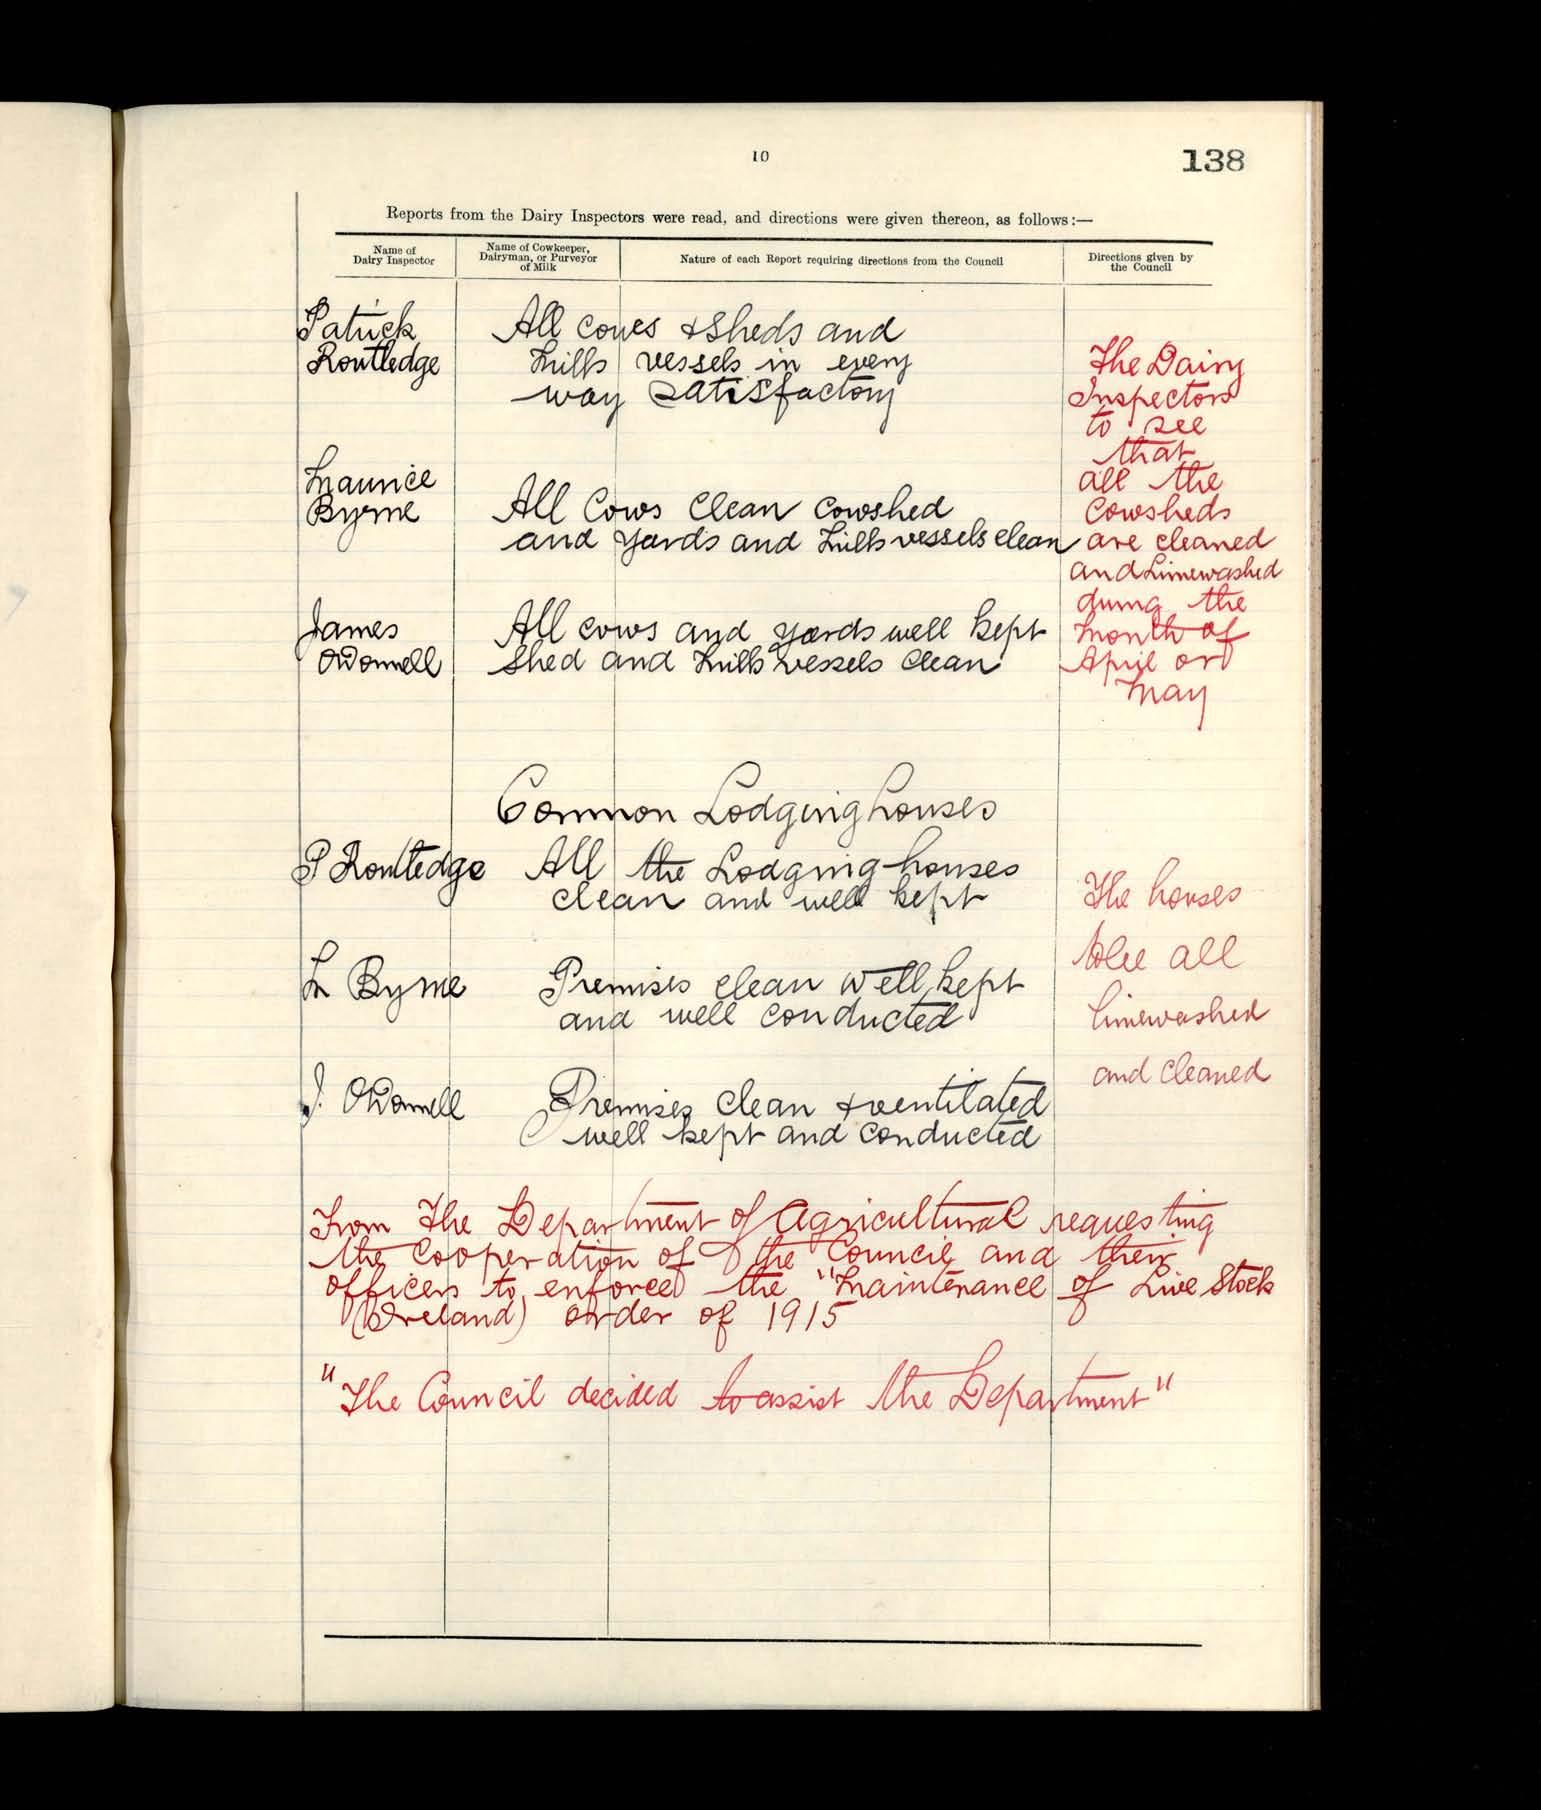 10
138
Reports from the Dairy Inspectors were read, and directions were given thereon, as follows:—
Name of
Dairy Inspector
Name of Cowkeeper,
Dairyman, or Purveyor
of Milk
Nature of each Report requiring directions from the Council
Directions given by
the Council
Patrick
Routledge
All cows & sheds and
Milk vessels in every
way satisfactory
Maurice
Byrne
All Cows Clean Cowshed
and yards and Milk vessels clean
James
O'Donnell
All cows and yards well kept
Shed and Milk vessels clean
The Dairy
Inspectors
to see
that
all the
Cowsheds
are cleaned
and Limewashed
during the
month of
April or
May
Common Lodging houses
P Routledge
All the Lodging houses
clean and well kept
M Byrne
Premises clean well kept
and well conducted
J. O'Donnell
Premises clean & ventilated
well kept and conducted
The houses
all
limewashed
and cleaned
From The Department of Agricultural requesting
the cooperation of the Council and their
officers to enforce the "Maintenance of Live Stock
(Ireland) order of 1915
"The Council decided to assist the Department"